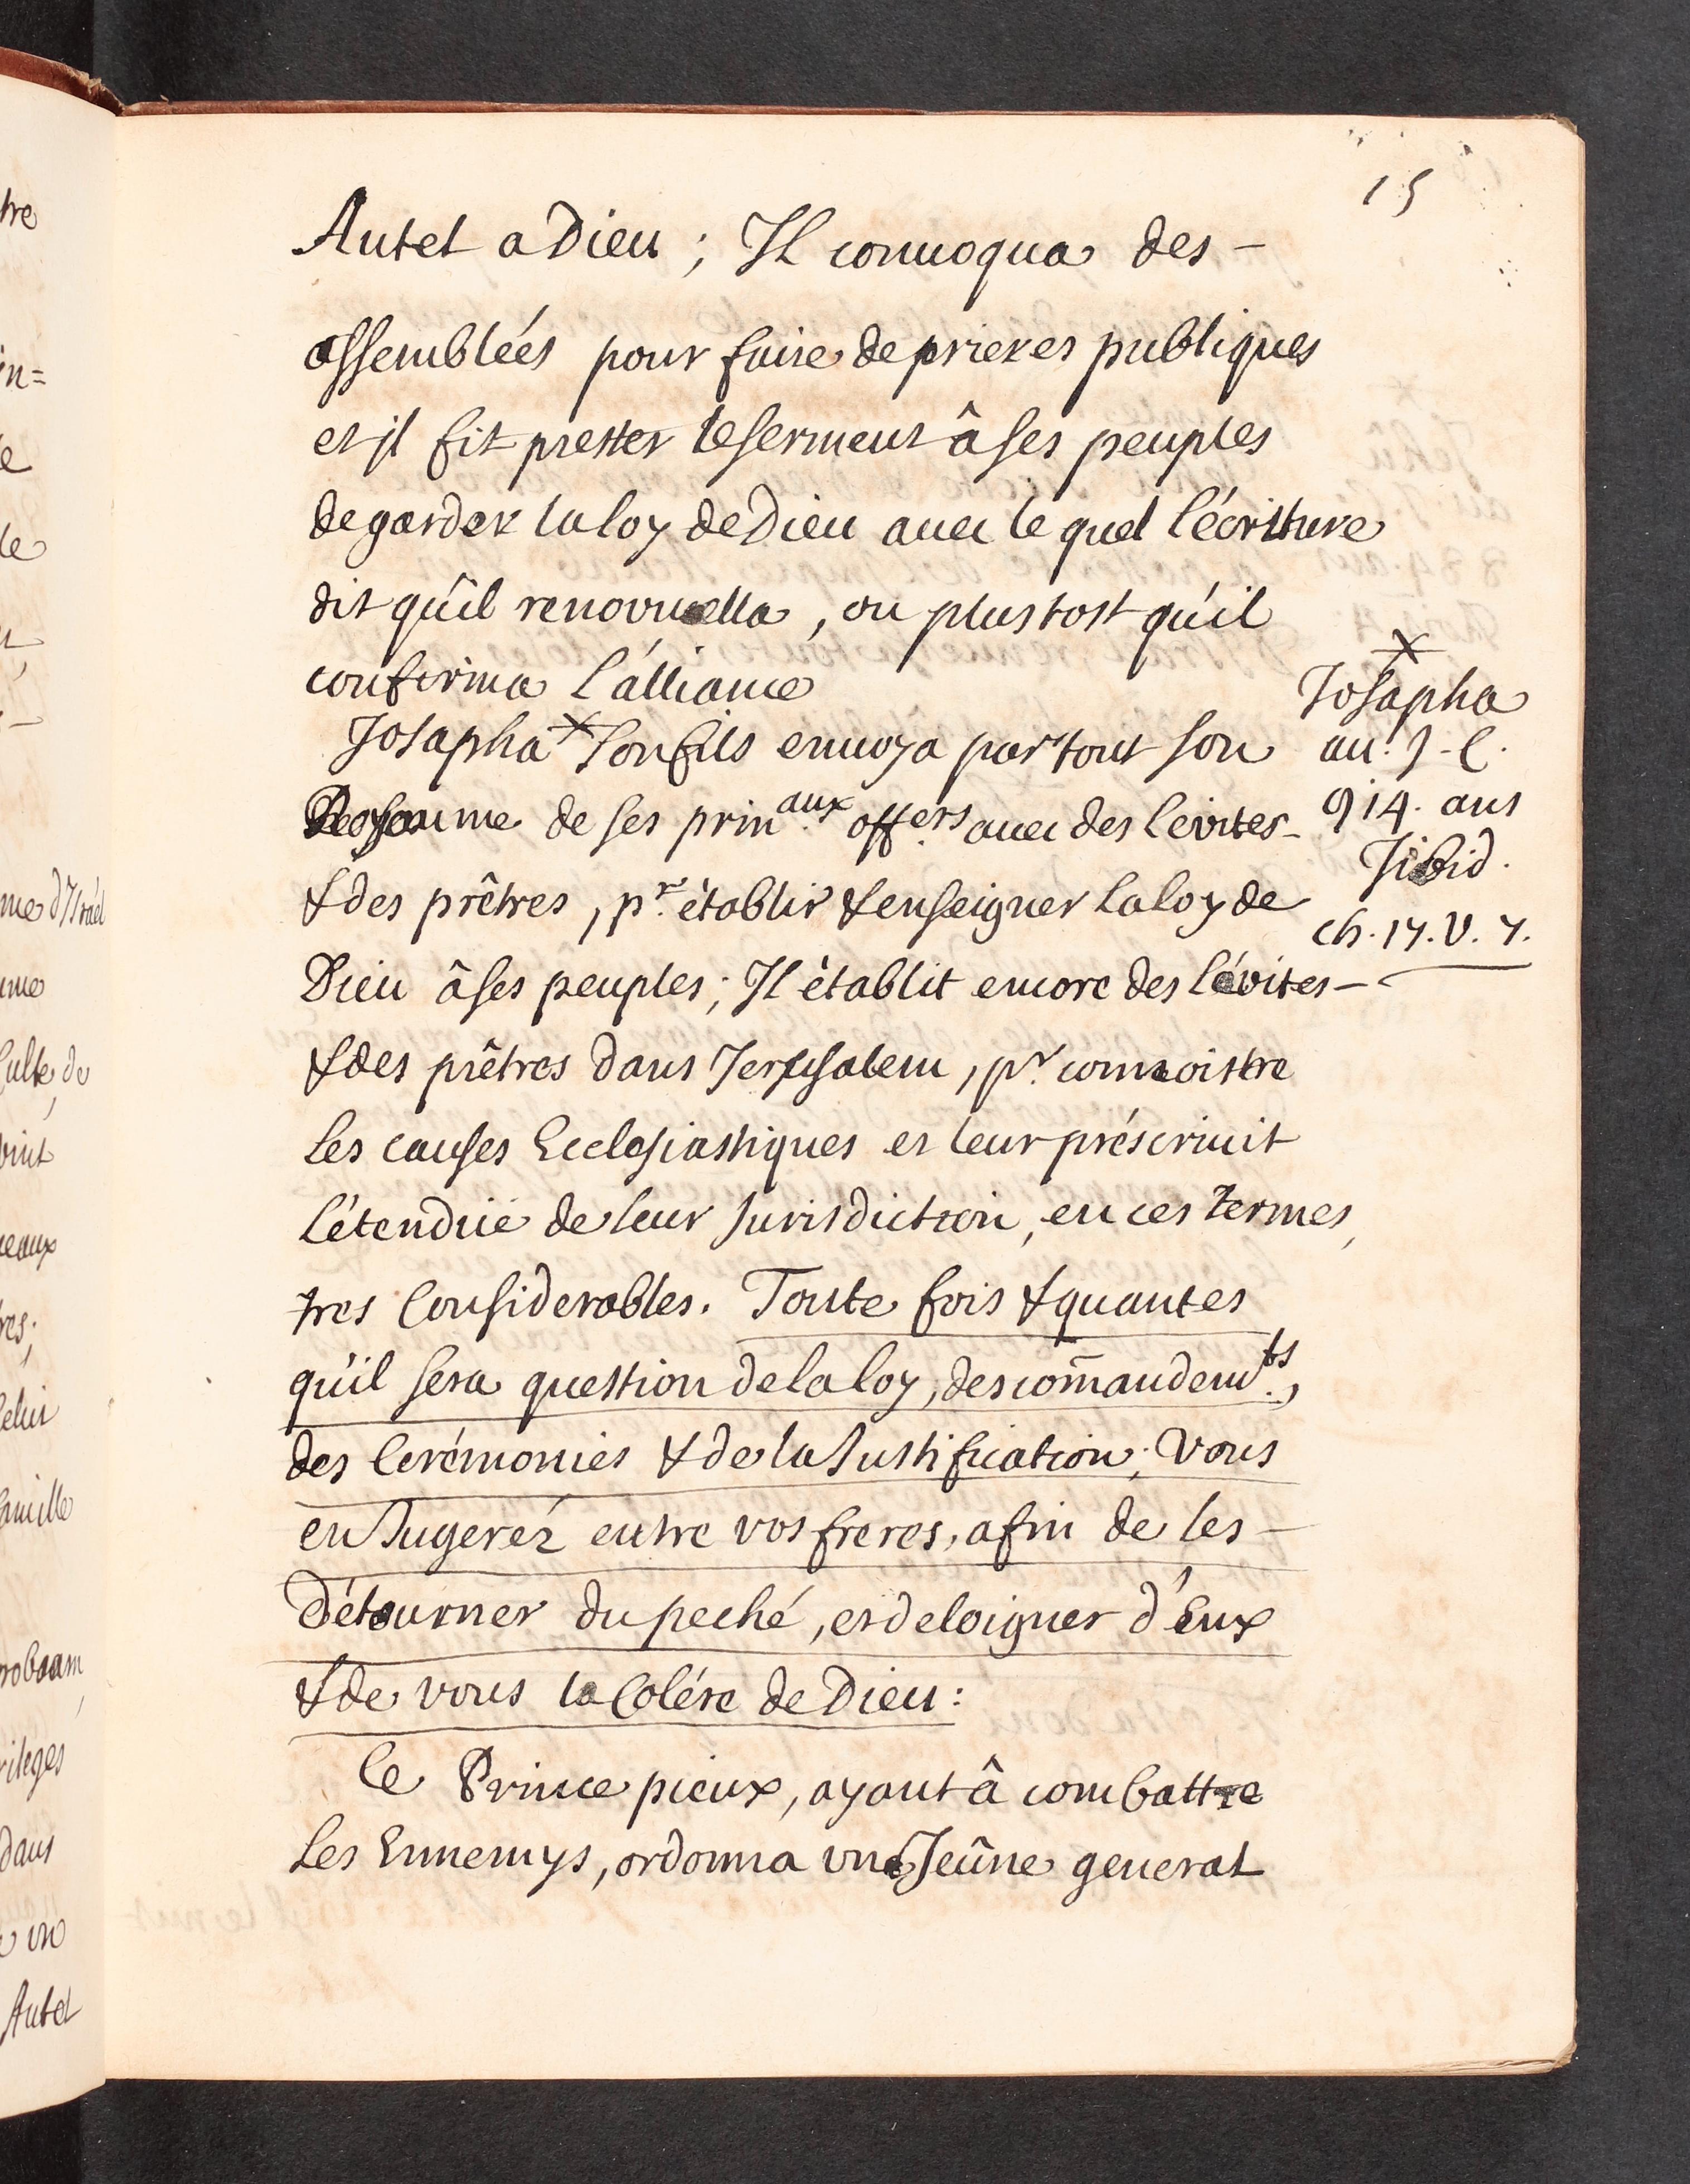 15
Autel a Dieu ; Il conuoqua des -
assembleés pour faire de prieres publiques
et il fit prester le serment â ses peuples
de garder la loy de Dieu auec le quel l'écriture
dit qu'il renouuella, ou plustost qu'il
confirma l'alliance
Josapha x son fils enuoya par tout son
Royaume de ses prin.aux off.ers auec des levites -
& des prêtres, p.r établir & enseigner la loy de
Dieu â ses peuples ; Il établit encore des lévites -
& des prêtres dans Jerusalem, p.r connoistre
Les causes Ecclesiastiques et leur préscriuit
L'étendüe de leur Jurisdiction, en ces termes,
tres Considerables. Toute fois & quantes
qu'il sera question de la loy, des com̄andem.ts,
des Cerémonies & de la Justification ; Vous
en Jugeréz entre vos freres, afin de les -
Détourner du peché, et deloigner d'Eux
& de vous la Colére de Dieu :
Ce Prince pieux, ayant â combattre
Les Ennemys, ordonna une Jeûne general
x
Josapha
au. J - C.
914. ans
Jibid.
ch. 17. V. 7.
tre
in=
e
le
me d'Israël
ume
Culte de
vint
ueaux
res ;
Celui
famille
roboam
rileges
dans
un
Autel